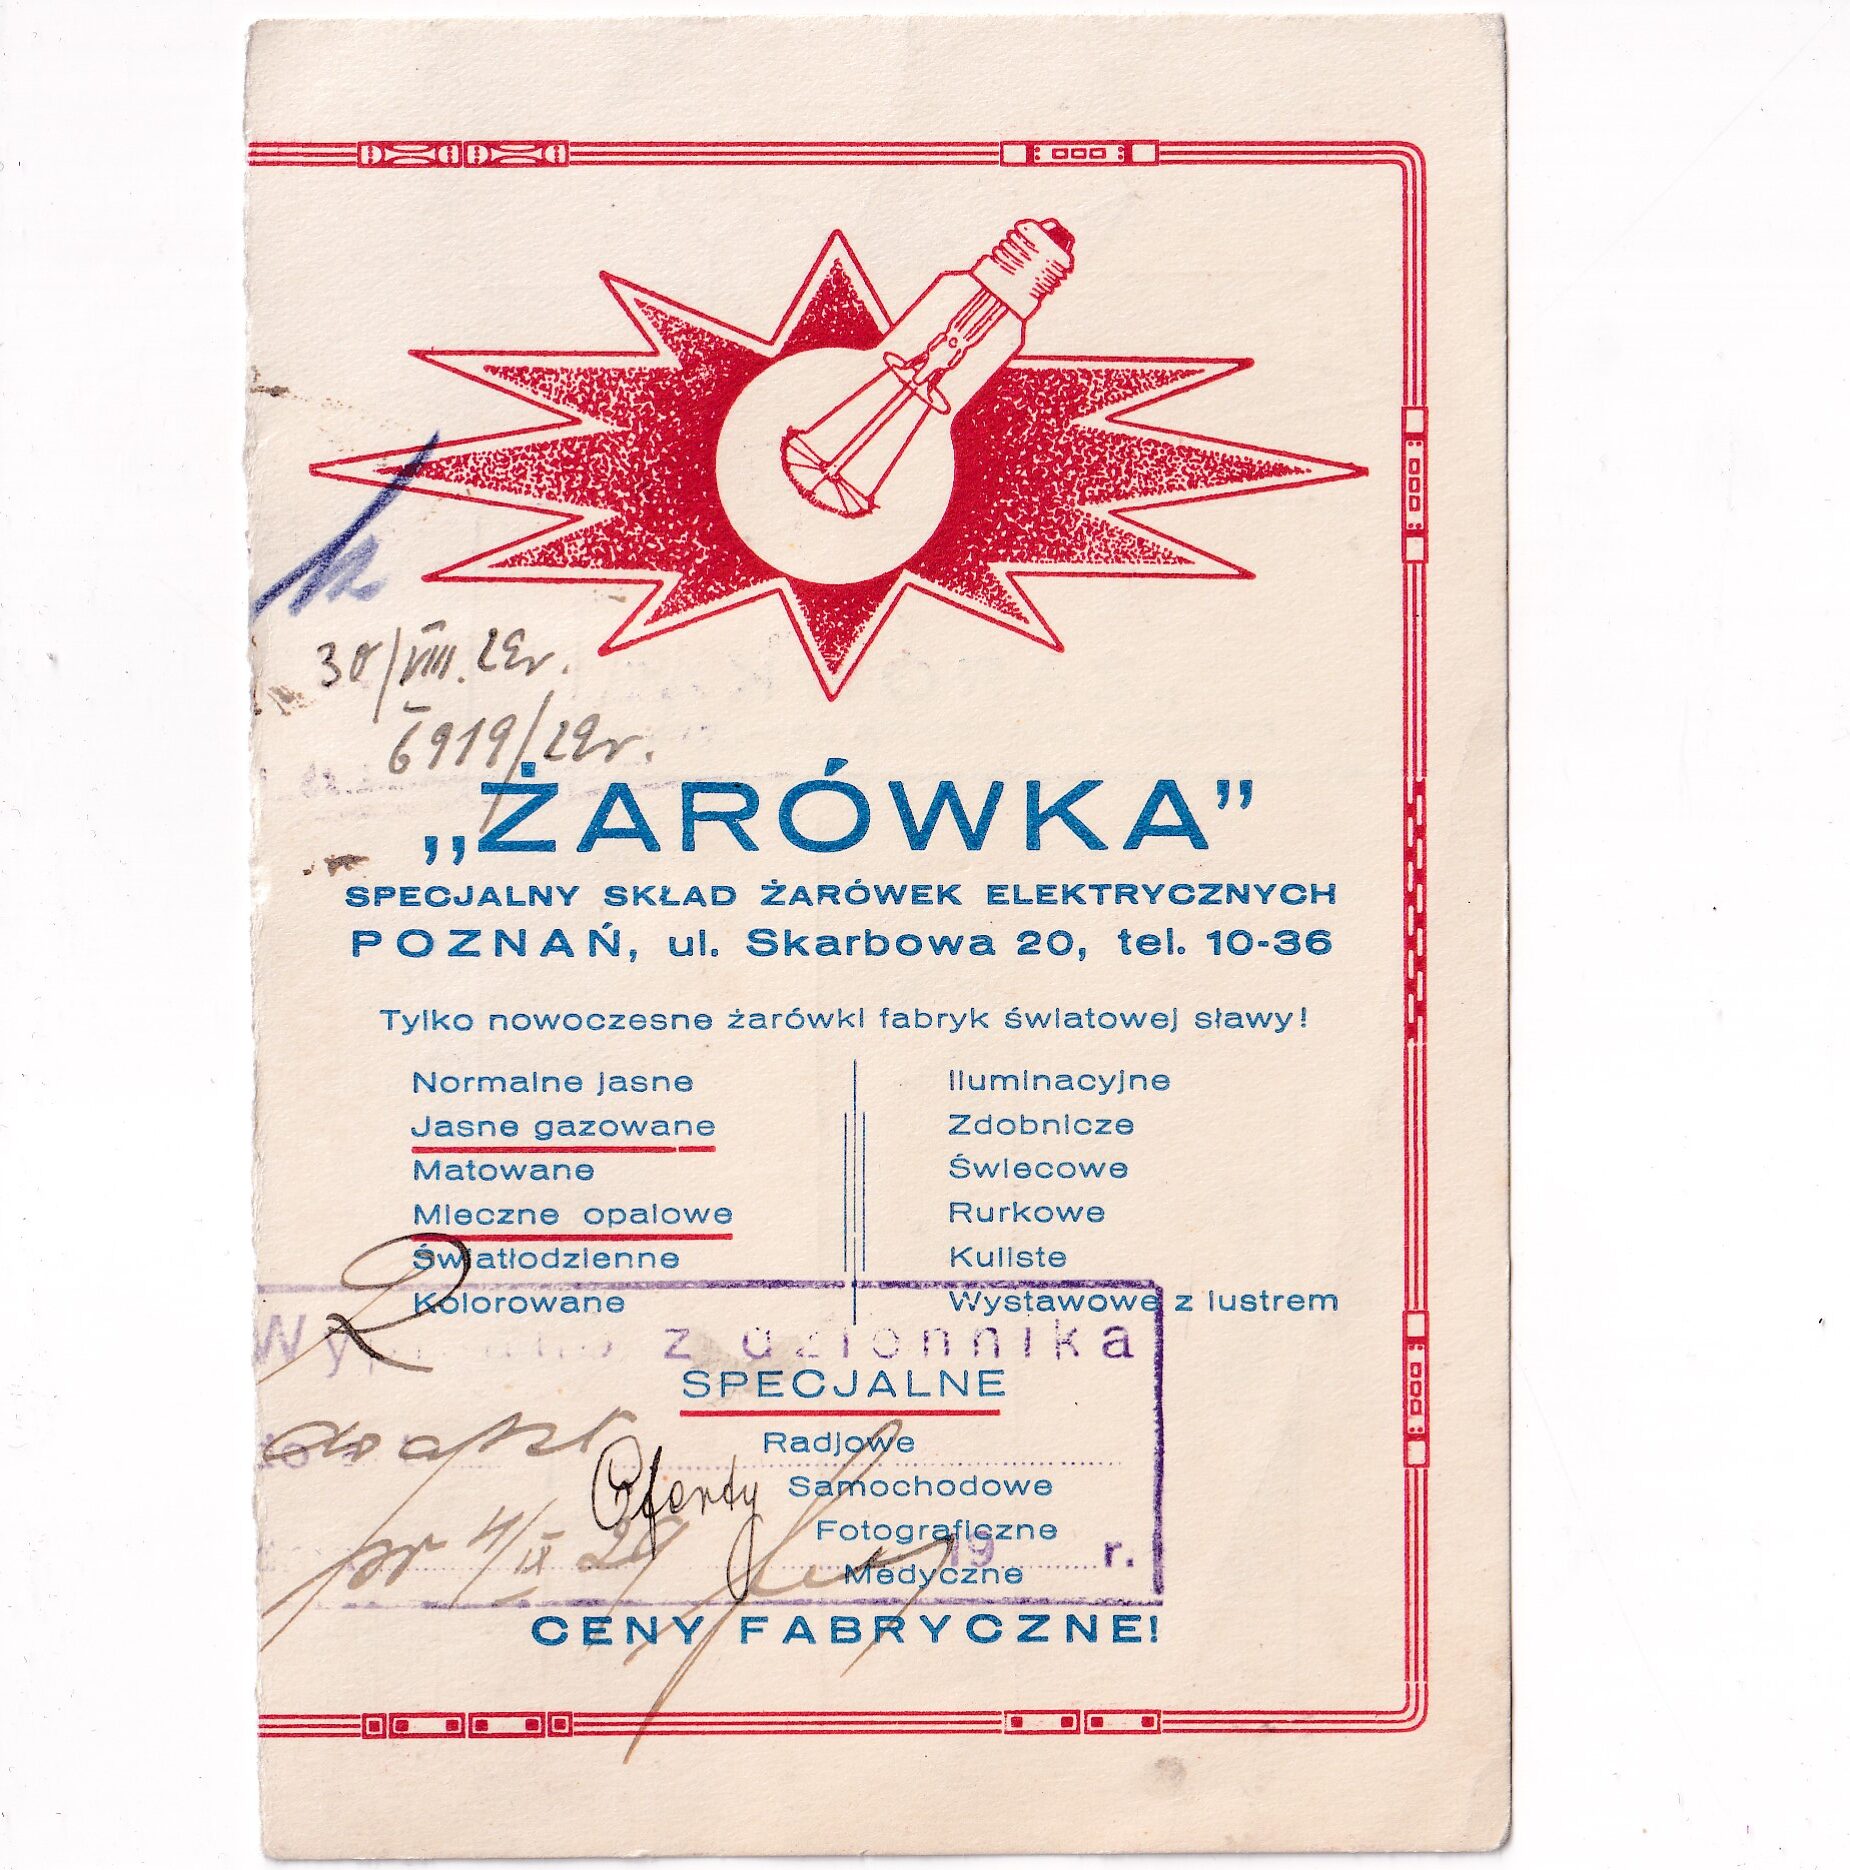 30/VIII. 29r.
6919/29r.
„ŻARÓWKA”
SPECJALNY SKŁAD ŻARÓWEK ELEKTRYCZNYCH
POZNAŃ, ul. Skarbowa 20, tel. 10-36
Tylko nowoczesne żarówki fabryk światowej sławy!
Normalne jasne
Jasne gazowane
Matowane
Mleczne opalowe
Światłodzienne
Kolorowane
Iluminacyjne
Zdobnicze
Świecowe
Rurkowe
Kuliste
Wystawowe z lustrem
z dziennika
SPECJALNE
Radjowe
Oferty
Samochodowe
Fotograficzne
4/IX 29
19 r.
Medyczne
CENY FABRYCZNE!